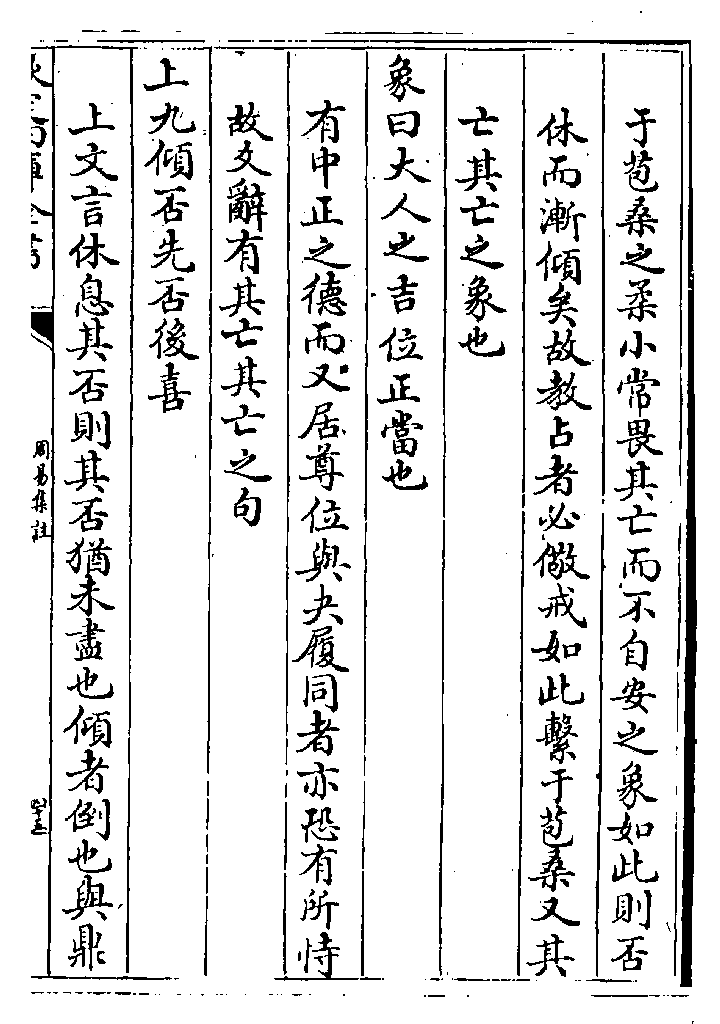 于苞桑之柔小常畏其亡而不自安之象如此則否
休而漸傾矣故教占者必儆戒如此繫于苞桑又其
亡其亡之象也
象曰大人之吉位正當也
有中正之德而又居尊位與夬履同者亦恐有所恃
故爻辭有其亡其亡之句
上九傾否先否後喜
上文言休息其否則其否猶未盡也傾者倒也與鼎
周易集註